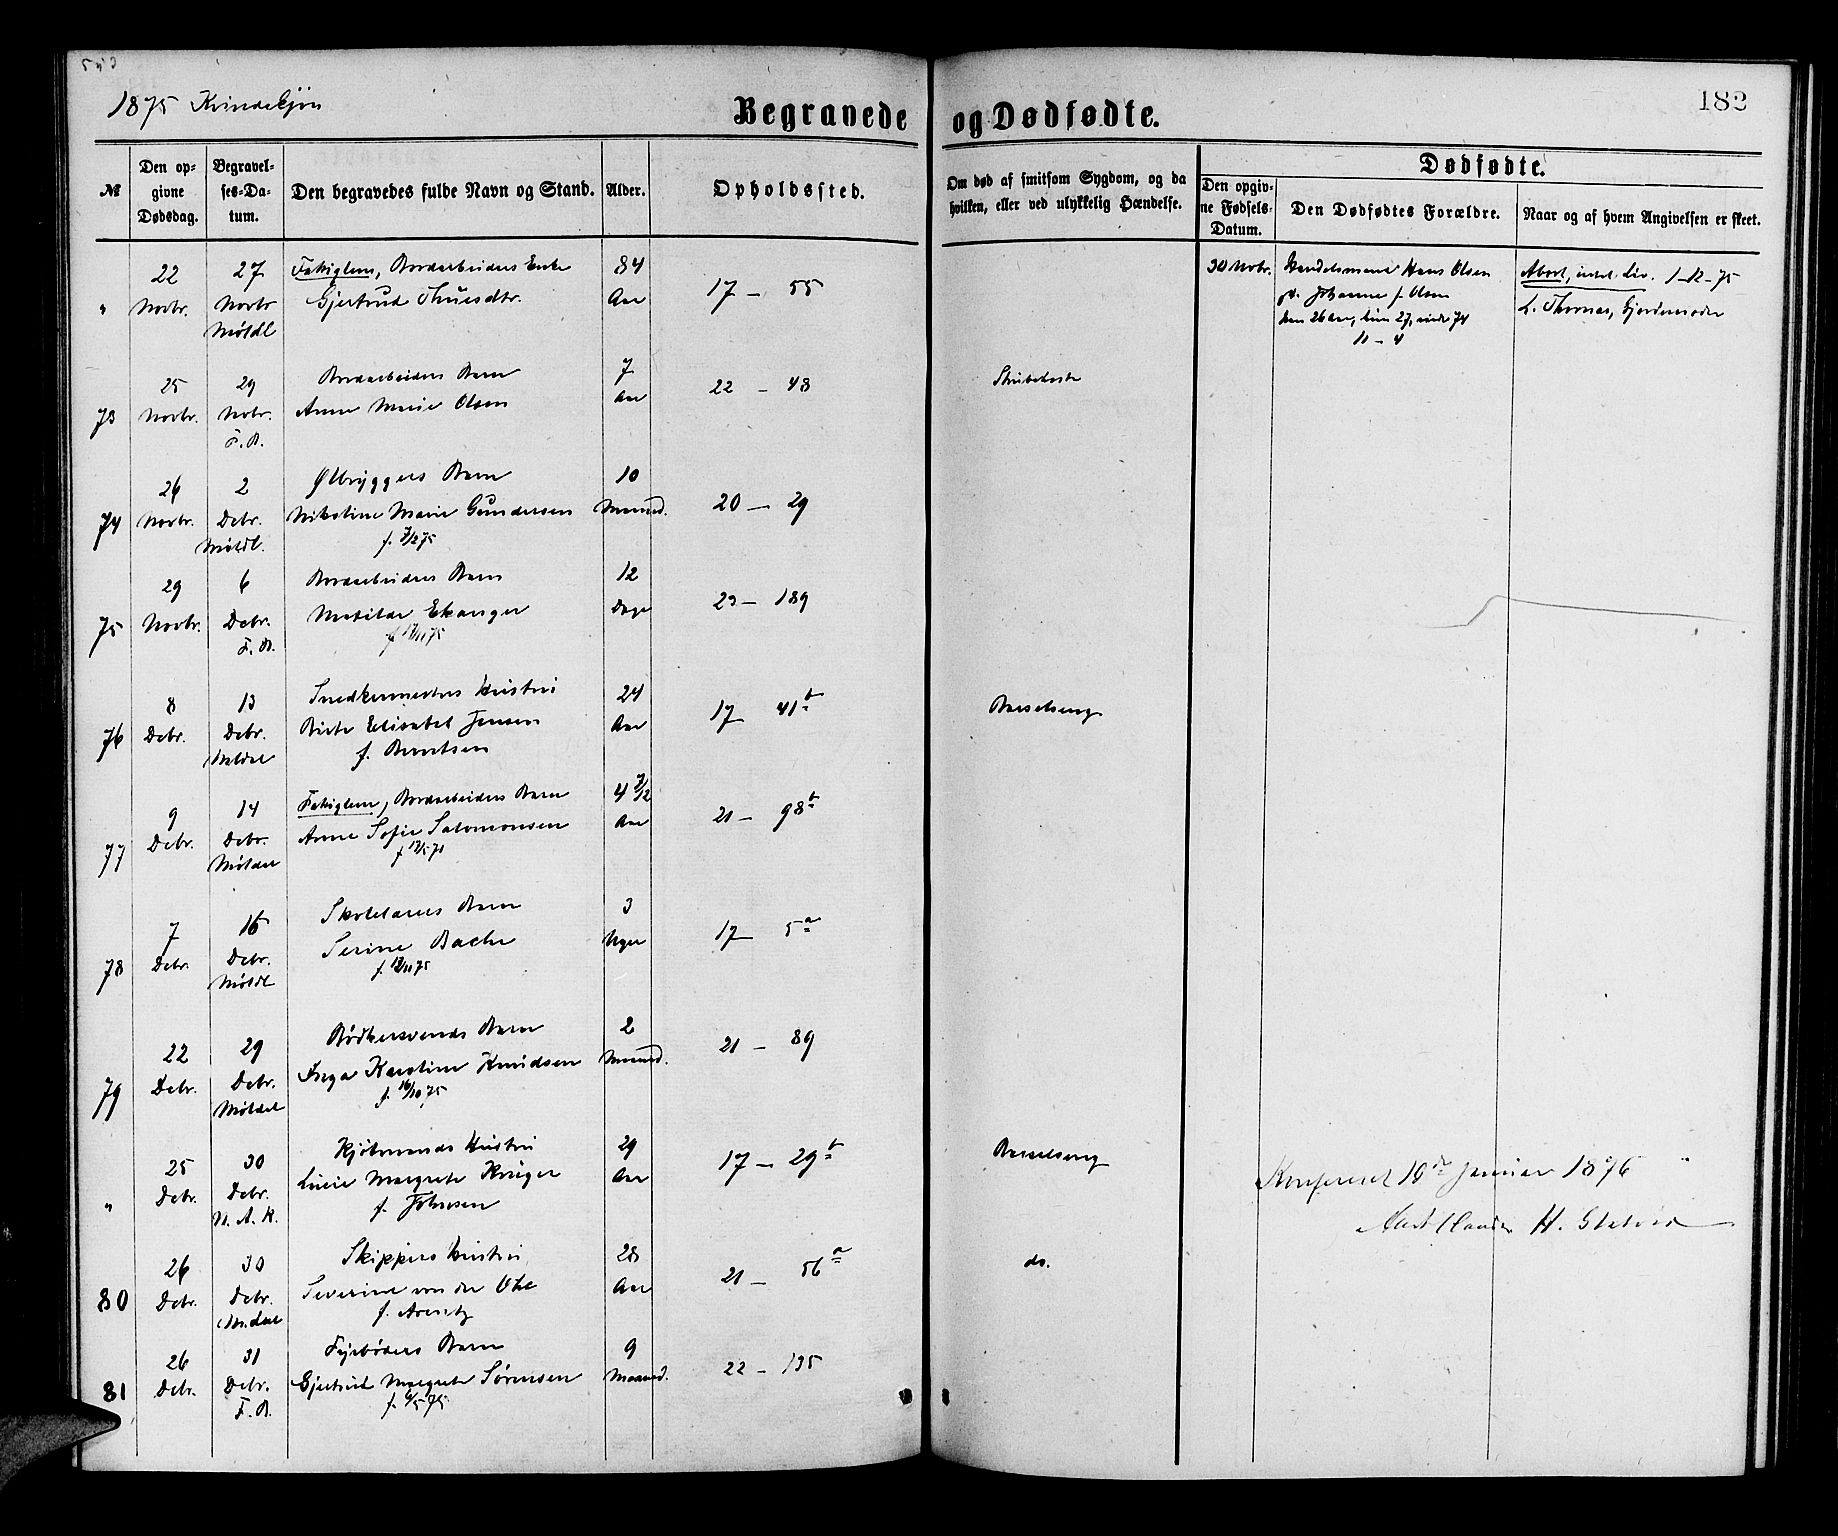 1875 Kvindekjøn
Begravede og Dødfødte.
182
№
Den opgivne Dødsdag.
Begravelses-Datum.
Den begravedes fulde Navn og Stand.
Alder.
Opholdssted.
Om død af smitsom Sygdom, og da hvilken, eller ved ulykkelig Hændelse.
Dødfødte.
Den opgivne Fødsels-Datum.
Den Dødfødtes Forældre.
Naar og af hvem Angivelsen er skeet.
" 22 Novbr. 27 Novbr Møldl
Fatiglem, Bordarbeiders Enke
Gjertrud Thuesdtr.
84 Aar
17 — 55
30 Novbr. Handelsmand Hans Olsen
Johanne f. Olsen
han 26 Aar, hun 27,
11 – 4
Abort, intet Liv. 1-12-75
L. Thornæs, Gjordemoder
73 25 Novbr. 29 Novbr. F. B.
Bordarbeiders Barn
Anne Marie Olsen
7 Aar
22 – 48
Strubehoste
74 26 Novbr. 2 Debr. Møldl.
Ølbryggers Barn
Nikoline Marie Gundersen
f. 7/2 75
10 Maaned.
20 — 29
75 29 Novbr. 6 Debr. F. B.
Bordarbeiders Barn
Matilde Ekanger
f. 17/11 75
12 Dage
23 — 189
76 8 Debr. 13 Debr. Møldal
Snedkermesters Hustru
Birte Elisabet Jensen
f. Berntsen
24 Aar
17 — 41 b
Barselseng
77 9 Debr. 14 Debr. Møldal
Fatiglem, Bordarbeiders Barn
Anne Sofie Salomonsen
f 12/5 71
4 7/12 Aar
21 — 98 b
78 7 Debr. 15 Debr. Møldl
Skolelærers Barn
Serine Bache
f. 18/11 75
3 Uger
17 — 5 a
79 22 Debr. 29 Debr. Møldal
Bødkersvends Barn
Inga Karoline Knudsen
f. 16/10 75
2 Maaned.
21 — 89
" 25 Debr. 30 Debr. N. A. K.
Kjøbmands Hustru
Lucie Margrete Krüger
f. Johnsen
29 Aar
17 — 29 b
Barselseng
Konfereret 10de Januar 1876
H. Statved
80 26 Debr. 30 Debr. M.dal
Skippers Hustru
Severine von der Ohe
f. Arentz
28 Aar
21 — 56 a
do.
81 26 Debr. 31 Debr. F. B.
Fyrbøders Barn
Gjertrud Margrete Sørensen
f. 6/5 75
9 Maaned.
22 — 135